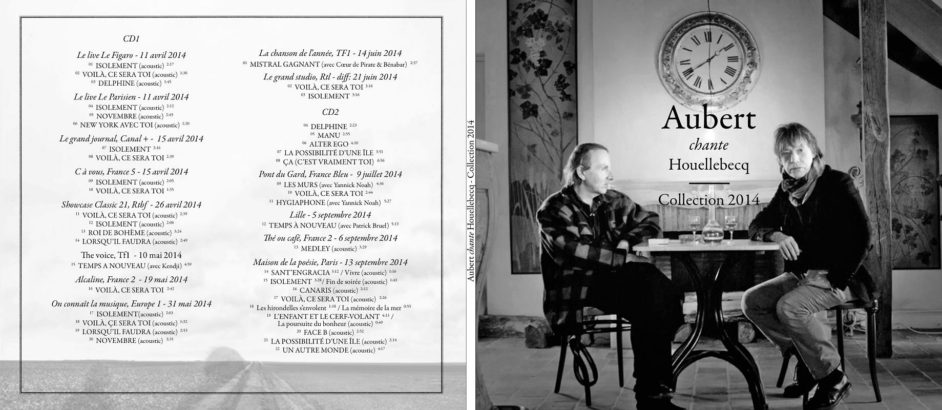 CD1
Le live Le Figaro - 11 avril 2014
01 ISOLEMENT (acoustic)
02 VOILÀ, CE SERA TOI (acoustic)
03 DELPHINE (acoustic)
Le live Le Parisien - 11 avril 2014
04 ISOLEMENT (acoustic)
05 NOVEMBRE (acoustic)
06 NEW YORK AVEC TOI (acoustic)
Le grand journal, Canal + - 15 avril 2014
07 ISOLEMENT
08 VOILÀ, CE SERA TOI
C à vous, France 5 - 15 avril 2014
09 ISOLEMENT (acoustic)
10 VOILÀ, CE SERA TOI
Showcase Classic 21, Rtbf - 26 avril 2014
11 VOILÀ, CE SERA TOI (acoustic)
12 ISOLEMENT (acoustic)
13 ROI DE BOHÈME (acoustic)
14 LORSQU'IL FAUDRA (acoustic)
The voice, Tf1 - 10 mai 2014
15 TEMPS A NOUVEAU (avec Kendji)
Alcaline, France 2 - 19 mai 2014
16 VOILÀ, CE SERA TOI
On connaît la musique, Europe 1 - 31 mai 2014
17 ISOLEMENT(acoustic)
18 VOILÀ, ÇE SERA TOI (acoustic)
19 LORSQU'IL FAUDRA (acoustic)
20 NOVEMBRE (acoustic)
La chanson de l'année, TF1 - 14 juin 2014
01 MISTRAL GAGNANT (avec Cœur de Pirate & Bénabar)
Le grand studio, Rtl - diff: 21 juin 2014
02 VOILÀ, CE SERA TOI
03 ISOLEMENT
CD2
04 DELPHINE
05 MANU
06 ALTER EGO
07 LA POSSIBILITÉ D'UNE ÎLE
08 ÇA (C'EST VRAIMENT TOI)
Pont du Gard, France Bleu - 9 juillet 2014
09 LES MURS (avec Yannick Noah)
10 VOILÀ, CE SERA TOI
11 HYGIAPHONE (avec Yannick Noah)
Lille - 5 septembre 2014
12 TEMPS À NOUVEAU (avec Patrick Bruel)
Thé ou café, France 2 - 6 septembre 2014
13 MEDLEY (acoustic)
Maison de la poésie, Paris - 13 septembre 2014
14 SANT'ENGRACIA / Vivre (acoustic)
15 ISOLEMENT / Fin de soirée (acoustic)
16 CANARIS (acoustic)
17 VOILÀ, CE SERA TOI (acoustic)
18 Les hirondelles s'envolent / La mémoire de la mer
19 L'ENFANT ET LE CERF-VOLANT /
La poursuite du bonheur (acoustic)
20 FACE B (acoustic)
21 LA POSSIBILITÉ D'UNE ÎLE (acoustic)
22 UN AUTRE MONDE (acoustic)
Aubert chante Houellebecq - Collection 2014
Aubert
chante
Houellebecq
Collection 2014